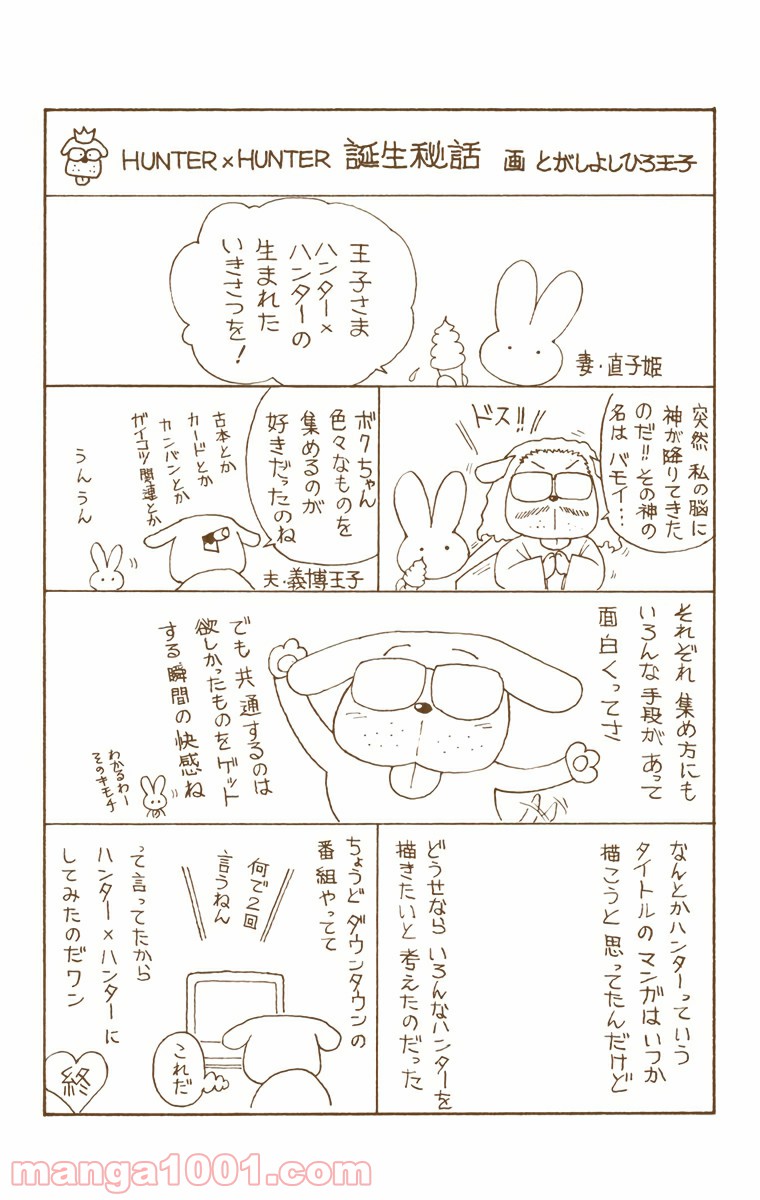 HUNTER×HUNTER 誕生秘話 画 とがしよしひろ王子
王子さま
ハンター×
ハンターの
生まれた
いきさつを!
妻・直子姫
突然 私の脳に
神が降りてきた
のだ!!その神の
名は バモイ…
ドス!!
ボクちゃん
色々なものを
集めるのが
好きだったのね
古本とか
カードとか
カンバンとか
ガイコツ関連とか
うんうん
夫・義博王子
それぞれ 集め方にも
いろんな 手段が あって
面白くってさ
でも 共通するのは
欲しかったものをゲット
する 瞬間の 快感ね
わかるわー
そのキモチ
なんとかハンターっていう
タイトルの マンガは いつか
描こうと 思ってたんだけど
どうせなら いろんなハンターを
描きたいと 考えたのだった
ちょうど ダウンタウンの
番組やってて
何で2回
言うねん
って言ってたから
ハンター×ハンターに
してみたのだワン
これだ
終
manga1001.com